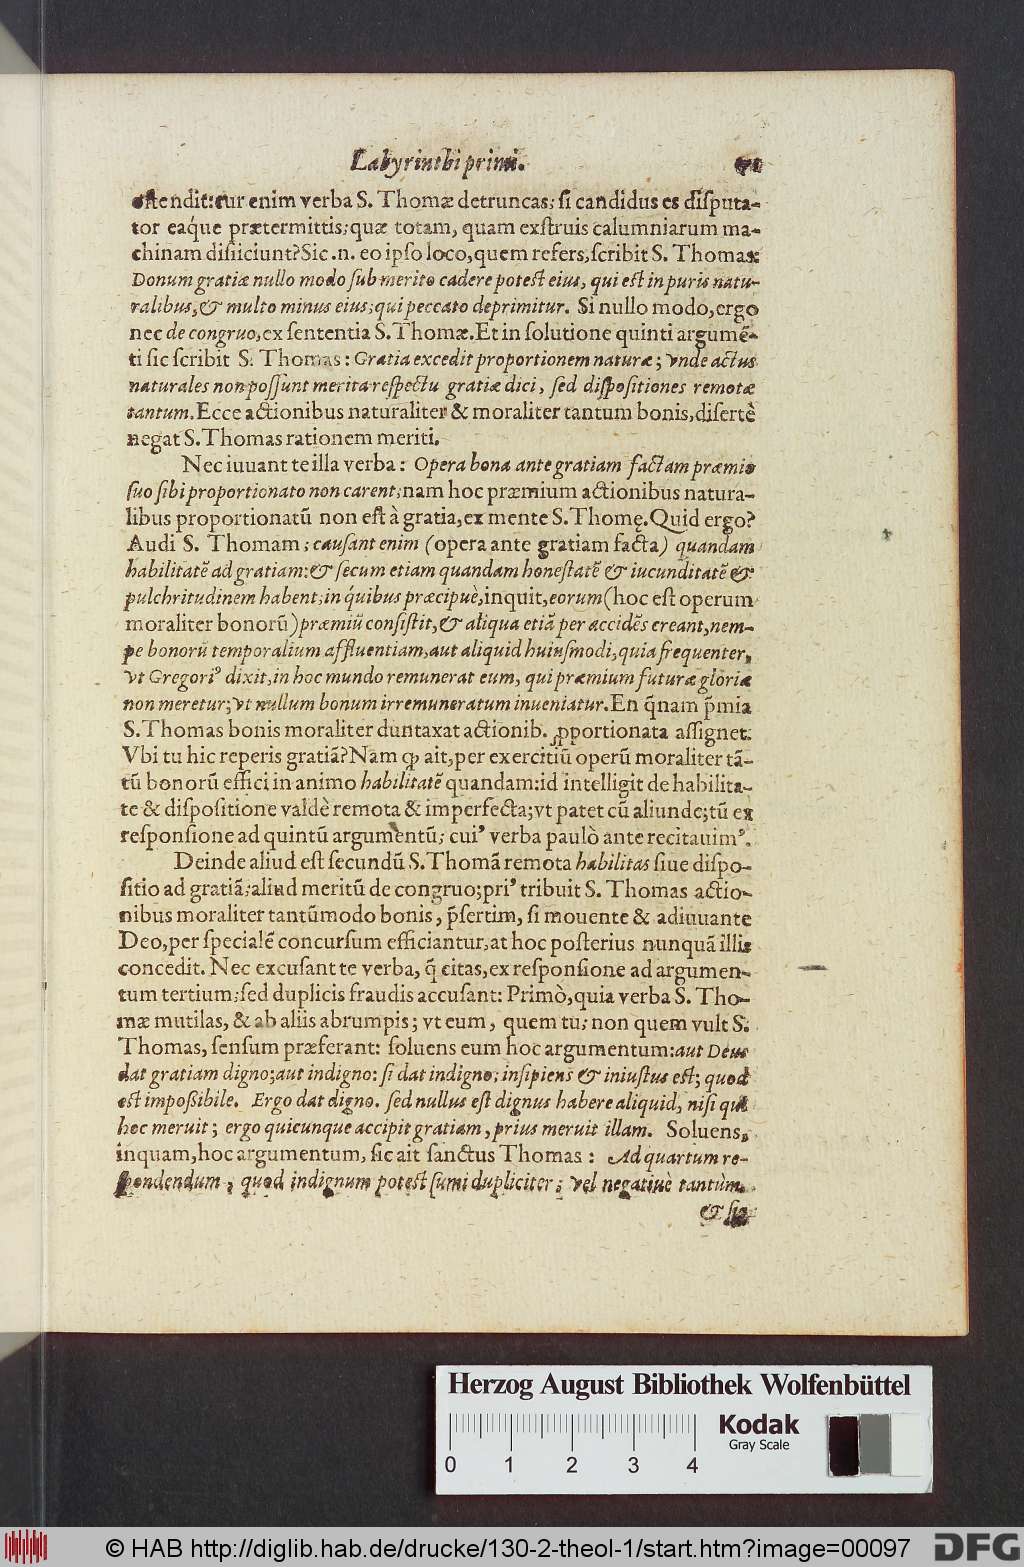 Labyrinthi primi. 41
ostendit: cur enim verba S. Thomæ detruncas; si candidus es disputa-
tor eaq́ue prætermittis; quæ totam, quam exstruis calumniarum ma-
chinam disiiciunt? Sic .n. eo ipso loco, quem refers, scribit S. Thomas:
Donum gratiæ nullo modo sub merito cadere potest eius, qui est in puris natu-
ralibus, & multo minus eius; qui peccato deprimitur. Si nullo modo, ergo
nec de congruo, ex sententia S. Thomæ. Et in solutione quinti argumẽ-
ti sic scribit S. Thomas: Gratia excedit proportionem naturæ; vnde actus
naturales non possunt merita respectu gratiæ dici, sed dispositiones remotæ
tantum. Ecce actionibus naturaliter & moraliter tantum bonis, disertè
negat S. Thomas rationem meriti.
Nec iuuant te illa verba: Opera bona ante gratiam factam præmio
suo sibi proportionato non carent; nam hoc præmium actionibus natura-
libus proportionatũ non est à gratia, ex mente S. Thomę. Quid ergo?
Audi S. Thomam; causant enim (opera ante gratiam facta) quandam
habilitatẽ ad gratiam: & secum etiam quandam honestatẽ & iucunditatẽ &
pulchritudinem habent, in q́uibus præcipuè, inquit, eorum (hoc est operum
moraliter bonorũ) præmiũ consistit, & aliqua etiã per accidẽs creant, nem-
pe bonorũ temporalium affluentiam, aut aliquid huiusmodi, quia frequenter,
vt Gregoriꝰ dixit, in hoc mundo remunerat eum, qui præmium futuræ gloriæ
non meretur; vt nullum bonum irremuneratum inueniatur. En q̃nam p̃mia
S. Thomas bonis moraliter duntaxat actionib. ꝓportionata assignet.
Vbi tu hic reperis gratiã? Nam ꝙ ait, per exercitiũ operũ moraliter tã-
tũ bonorũ effici in animo habilitatẽ quandam: id intelligit de habilita-
te & dispositione valdè remota & imperfecta; vt patet cũ aliunde; tũ ex
responsione ad quintũ argumentũ; cuiꝰ verba paulò ante recitauimꝰ.
Deinde aliud est secundũ S. Thomã remota habilitas siue dispo-
sitio ad gratiã; aliud meritũ de congruo; priꝰ tribuit S. Thomas actio-
nibus moraliter tantũmodo bonis, p̃sertim, si mouente & adiuuante
Deo, per specialẽ concursum efficiantur, at hoc posterius nunquã illis
concedit. Nec excusant te verba, q̃ citas, ex responsione ad argumen-
tum tertium; sed duplicis fraudis accusant: Primò, quia verba S. Tho-
mæ mutilas, & ab aliis abrumpis; vt eum, quem tu; non quem vult S.
Thomas, sensum præferant: soluens eum hoc argumentum: aut Deus
dat gratiam digno; aut indigno: si dat indigno; insipiens & iniustus est; quod
est impoßibile. Ergo dat digno. sed nullus est dignus habere aliquid, nisi qui
hoc meruit; ergo quicunque accipit gratiam, prius meruit illam. Soluens,
inquam, hoc argumentum, sic ait sanctus Thomas: Ad quartum re-
spondendum, quod indignum potest sumi dupliciter; vel negatiuè tantùm.
& sic
Herzog August Bibliothek Wolfenbüttel
Kodak
Gray Scale
0 1 2 3 4
© HAB http://diglib.hab.de/drucke/130-2-theol-1/start.htm?image=00097
DFG